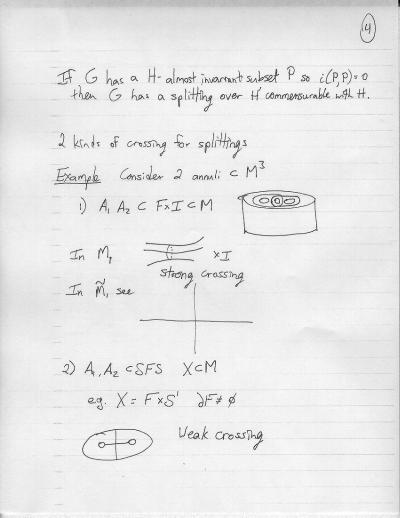 4
If G has a H-almost invariant subset P so i(P,P)=0
then G has a splitting over H' commensurable with H.
2 kinds of crossing for splittings
Example Consider 2 annuli ⊂ M³
1) A₁ A₂ ⊂ F×I ⊂ M
In M,
×I
strong crossing
In M̃, see
2) A₁, A₂ ⊂ SFS X⊂M
e.g. X = F×S¹ ∂F≠φ
Weak crossing